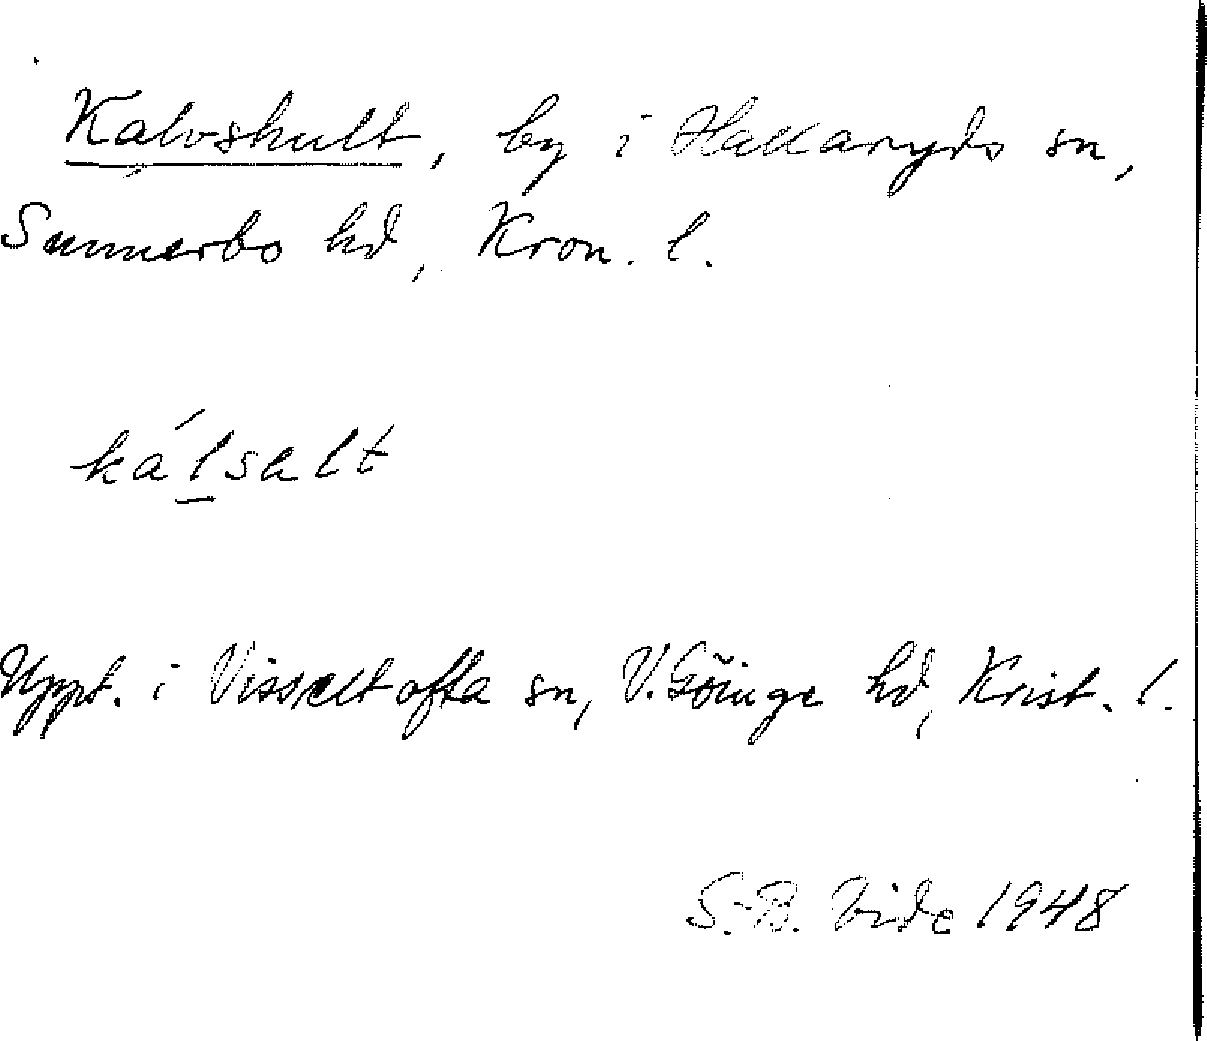 Kalvshult, by i Hallaryds sn,
Sunnerbo hd, Kron. l.
kálsalt
Uppt. i Visseltofta sn, V. Göinge hd, Krist. l.
S.-B. Vide 1948